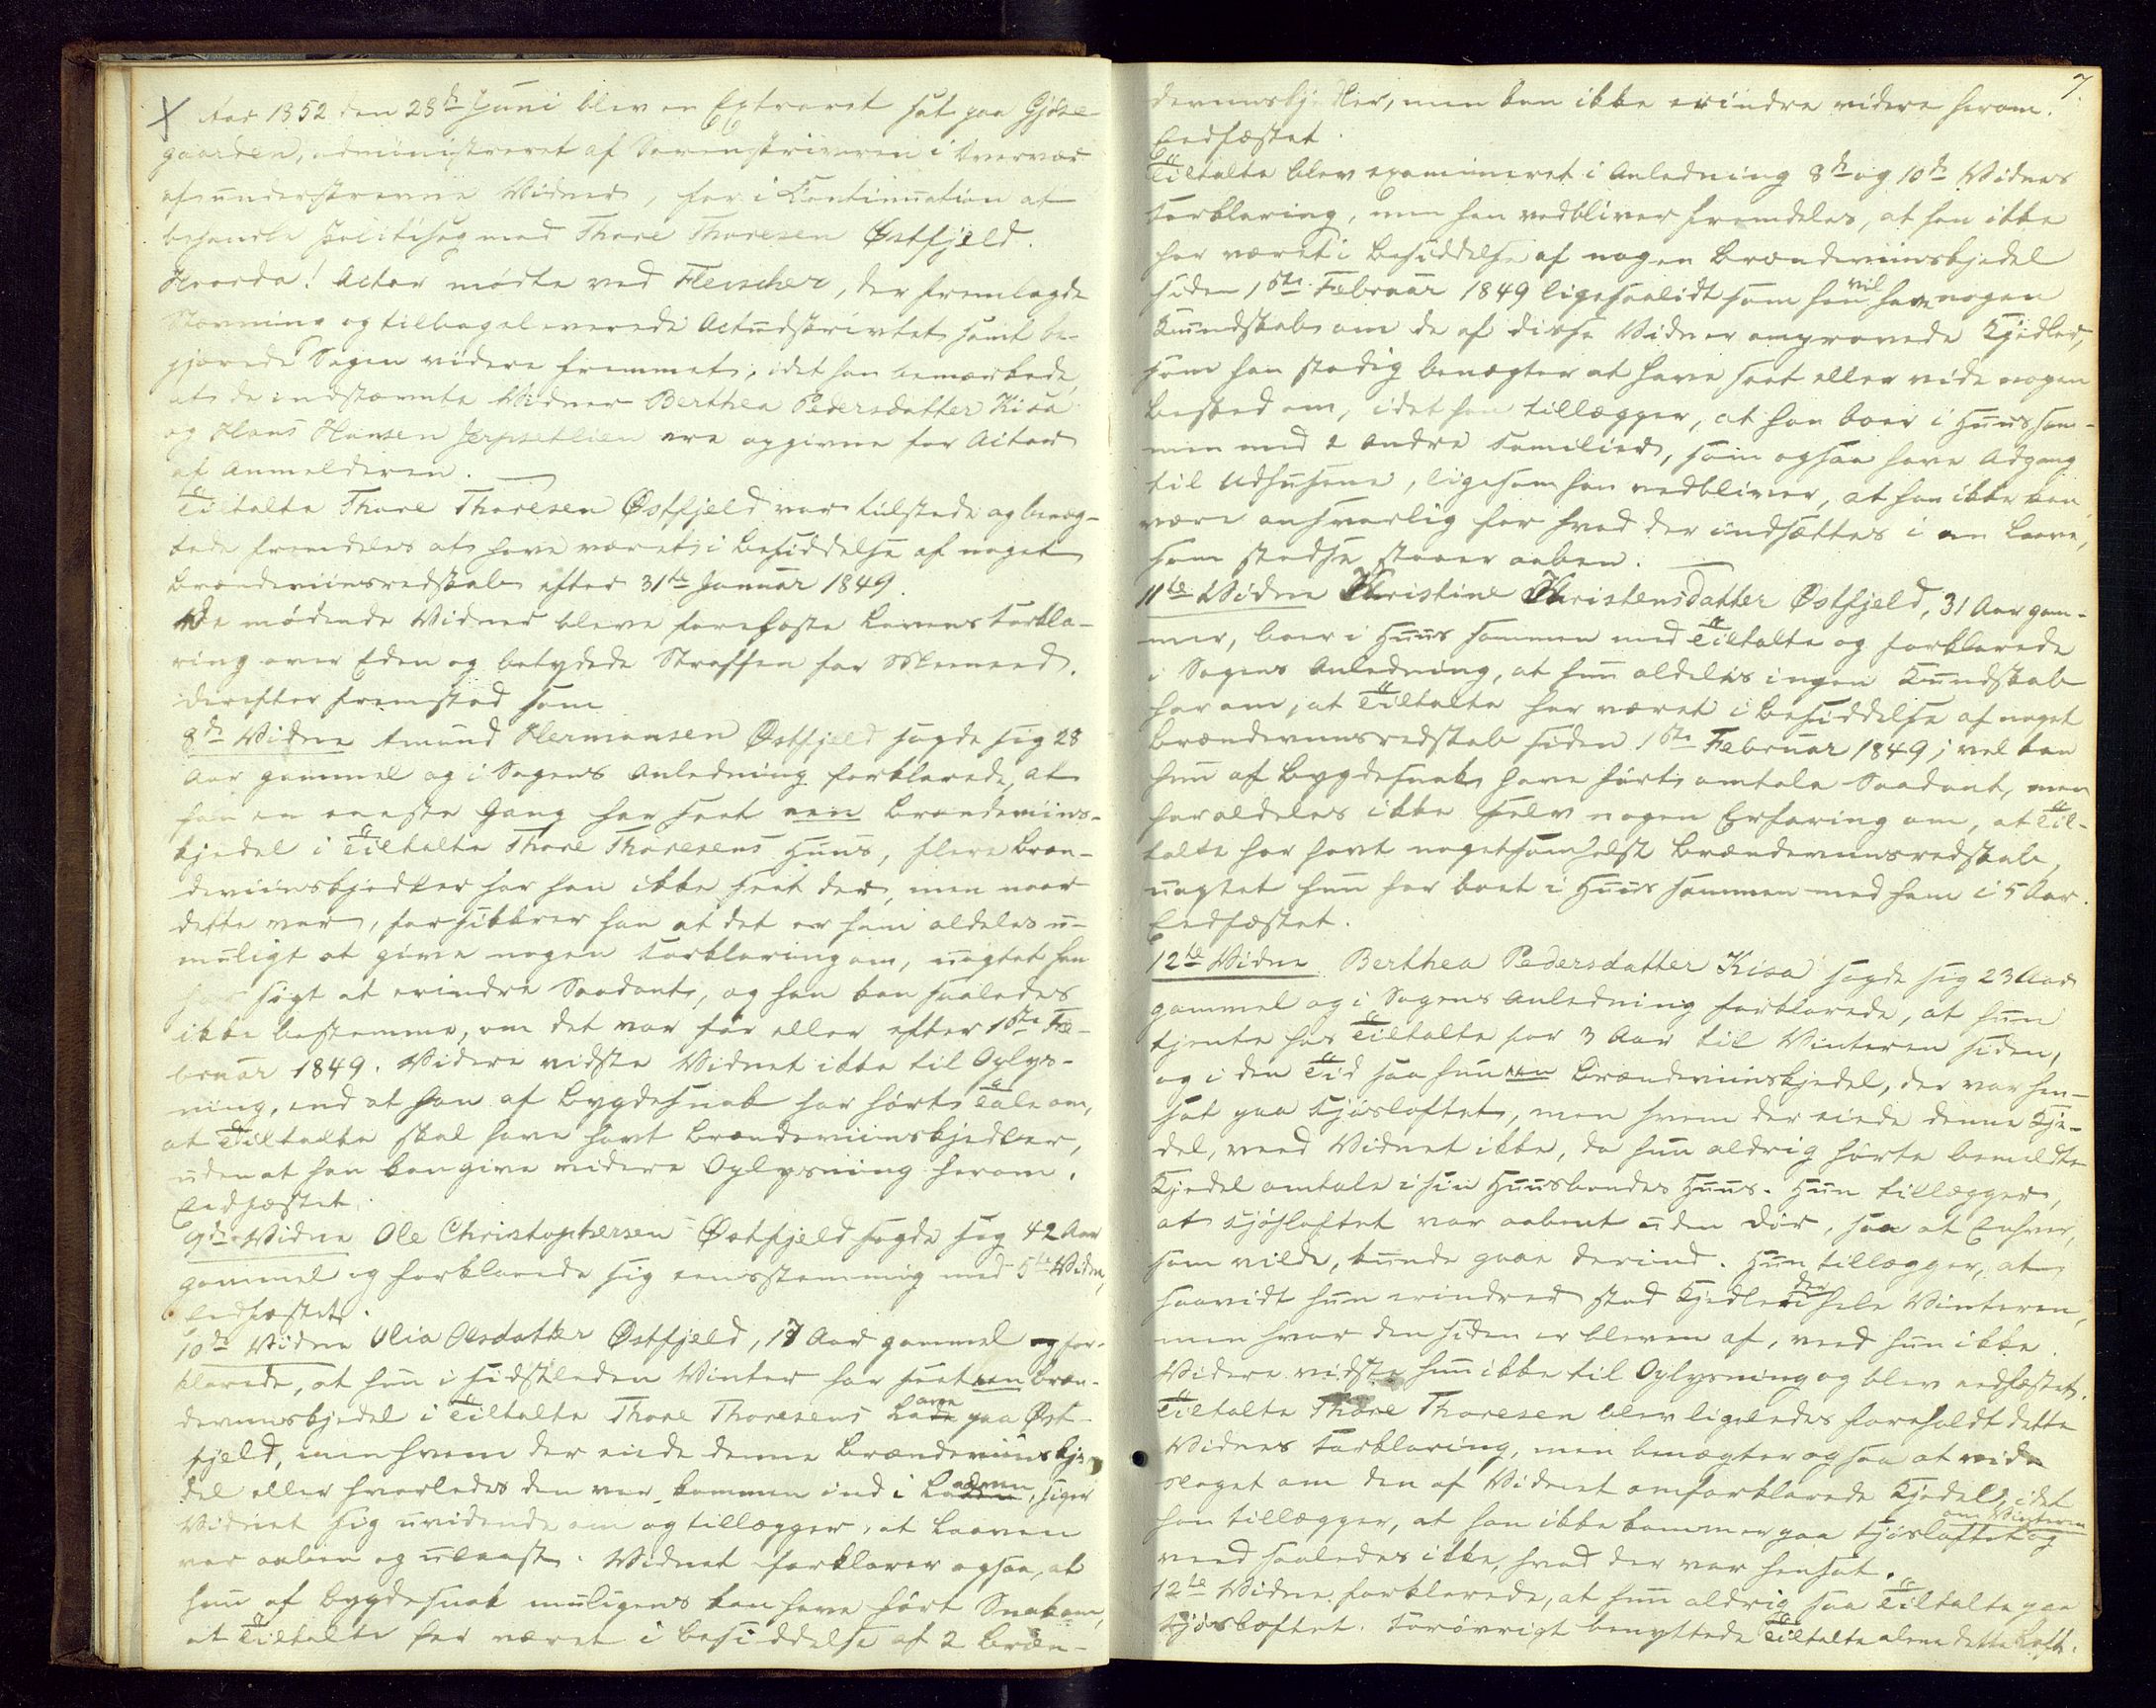 Aar 1852 den 28de Juni blev en Extraret sat paa Gjöse-
gaarden, administreret af Sorenskriveren i Overvær
af underskrevne Vidner, for i Continuation at
behandle Politisag mod Thore Thoresen Østfjeld.
Hvorda! Actor mødte ved Fleischer, der fremlagde
Stævning og tilbageleverede Actudskrivtet samt be-
gjærede Sagen videre fremmet; idet han bemærkede,
at de indstævnte Vidner Berthea Pedersdatter Kisa
og Hans Hansen Jerpsetlien ere opgivne for Actor
af Anmelderen.
Tiltalte Thore Thoresen Østfjeld var tilstede og benæg-
tede fremdeles at have været i Besiddelse af noget
Brændeviinsredskab efter 31te Januar 1849.
De mødende Vidner bleve foreholdte Lovens Forkla-
ring over Eden og betydede Straffen for Meeneed.
Derefter fremstod som
8de Vidne Amund Hermansen Østfjeld sagde sig 28
Aar gammel og i Sagens Anledning forklarede, at
han en eneste Gang har seet een Brændeviins-
kjedel i Tiltalte Thore Thoresens Huus, flere Bræn-
deviinskjedler har han ikke seet der, men naar
dette var, forsikkrer han at det er ham aldeles u-
muligt at give nogen Forklaring om, uagtet han
har søgt at erindre Saadant, og han kan saaledes
ikke bestemme, om det var før eller efter 1ste Fe-
bruar 1849. Videre vidste Vidnet ikke til Oplys-
ning, end at han af Bygdesnak har hørt Tale om,
at Tiltalte skal have havt Brændeviinskjedler,
uden at han kan give videre Oplysning herom.
Eedfæstet.
9de Vidne Ole Christophersen Østfjeld sagde sig 42 Aar
gammel og forklarede sig eensstemmig med 5te Vidne,
Eedfæstet.
10de Vidne Olia Olsdatter Østfjeld, 17 Aar gammel og for-
klarede, at hun i sidstleden Vinter har seet een Bræn-
deviinskjedel i Tiltalte Thore Thoresens Laave paa Øst-
fjeld, men hvem der eiede denne Brændeviinskje-
del eller hvorledes den var kommen ind i Laaven, siger
Vidnet sig uvidende om og tillægger, at Laaven
var aaben og ulaast. Vidnet forklarer ogsaa, at
hun af Bygdesnak muligens kan have hørt Snak om,
at Tiltalte har været i Besiddelse af 2 Bræn-
7
deviinskjedler, men kan ikke erindre videre herom.
Eedfæstet.
Tiltalte blev examineret i Anledning 8de og 10de Vidnes
Forklaring, men han vedbliver fremdeles, at han ikke
har været i Besiddelse af nogen Brændeviinskjedel
siden 1ste Februar 1849 ligesaalidt som han vil have nogen
Kundskab om de af disse Vidner omprovede Kjedler,
som han stadig benægter at have seet eller vide nogen
Besked om, idet han tillægger, at han boer i Huus sam-
men med 2 andre Familier, som ogsaa have Adgang
til Udhusene, ligesom han vedbliver, at han ikke kan
være ansvarlig for hvad der indsættes i en Laave,
som stedse staaer aaben.
11te Vidne Christine Christensdatter Østfjeld, 31 Aar gam-
mel, boer i Huus sammen med Tiltalte og forklarede
i Sagens Anledning, at hun aldeles ingen Kundskab
har om, at Tiltalte har været i Besiddelse af noget
Brændeviinsredskab siden 1ste Februar 1849; vel kan
hun af Bygdesnak have hørt omtale Saadant, men
har aldeles ikke selv nogen Erfaring om, at Til-
talte har havt nogetsomhelst Brændeviinsredskab,
uagtet hun har boet i Huus sammen med ham i 5 Aar.
Eedfæstet.
12te Vidne Berthea Pedersdatter Kisa sagde sig 23 Aar
gammel og i Sagens Anledning forklarede, at hun
tjente hos Tiltalte for 3 Aar til Vinteren siden,
og i den Tid saa hun een Brændeviinskjedel, der var hen-
sat paa Fjøsloftet, men hvem der eiede denne Kje-
del, veed Vidnet ikke, da hun aldrig hørte bemeldte
Kjedel omtale i sin Huusbondes Huus. Hun tillægger,
at Fjøsloftet var aabent uden Dør, saa at Enhver,
som vilde, kunde gaae derind. Hun tillægger, at
saavidt hun erindrer stod Kjedlen der hele Vinteren,
men hvor den siden er bleven af, veed hun ikke.
Videre vidste hun ikke til Oplysning og blev eedfæstet.
Tiltalte Thore Thoresen blev ligeledes foreholdt dette
Vidnes Forklaring, men benægter ogsaa at vide
Noget om den af Vidnet omforklarede Kjedel, idet
han tillægger, at han ikke kommer paa Fjøsloftet om Vinteren og
veed saaledes ikke, hvad der var hensat.
12te Vidne forklarede, at hun aldrig saa Tiltalte paa
Fjøsloftet. Forøvrigt benyttede Tiltalte alene dette Loft.